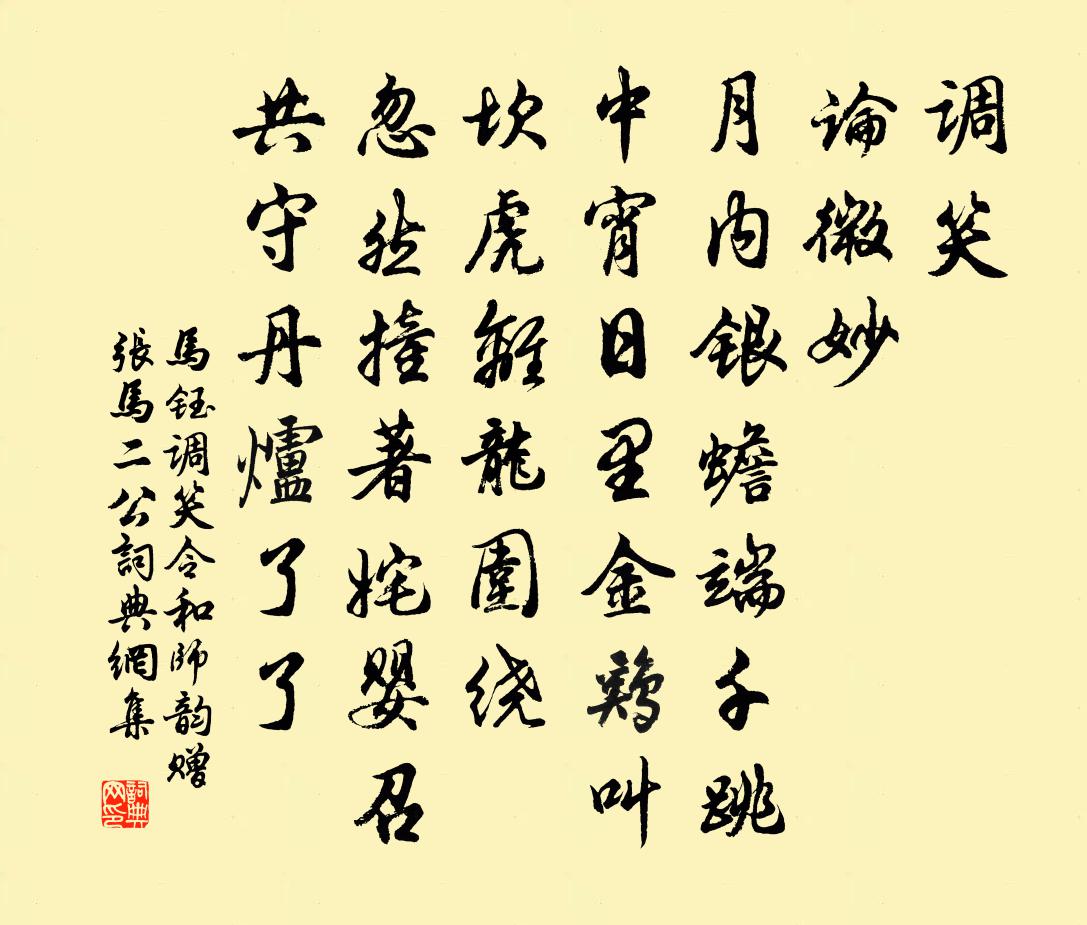 调笑
論微妙
月内银蟾端千跳
中宵日里金鷄叫
坎虎離龍圍绕
忽然撞著姹婴召
共守丹爐了了
馬钰调笑令和師韵赠
張馬二公詞典網集
詞典网印